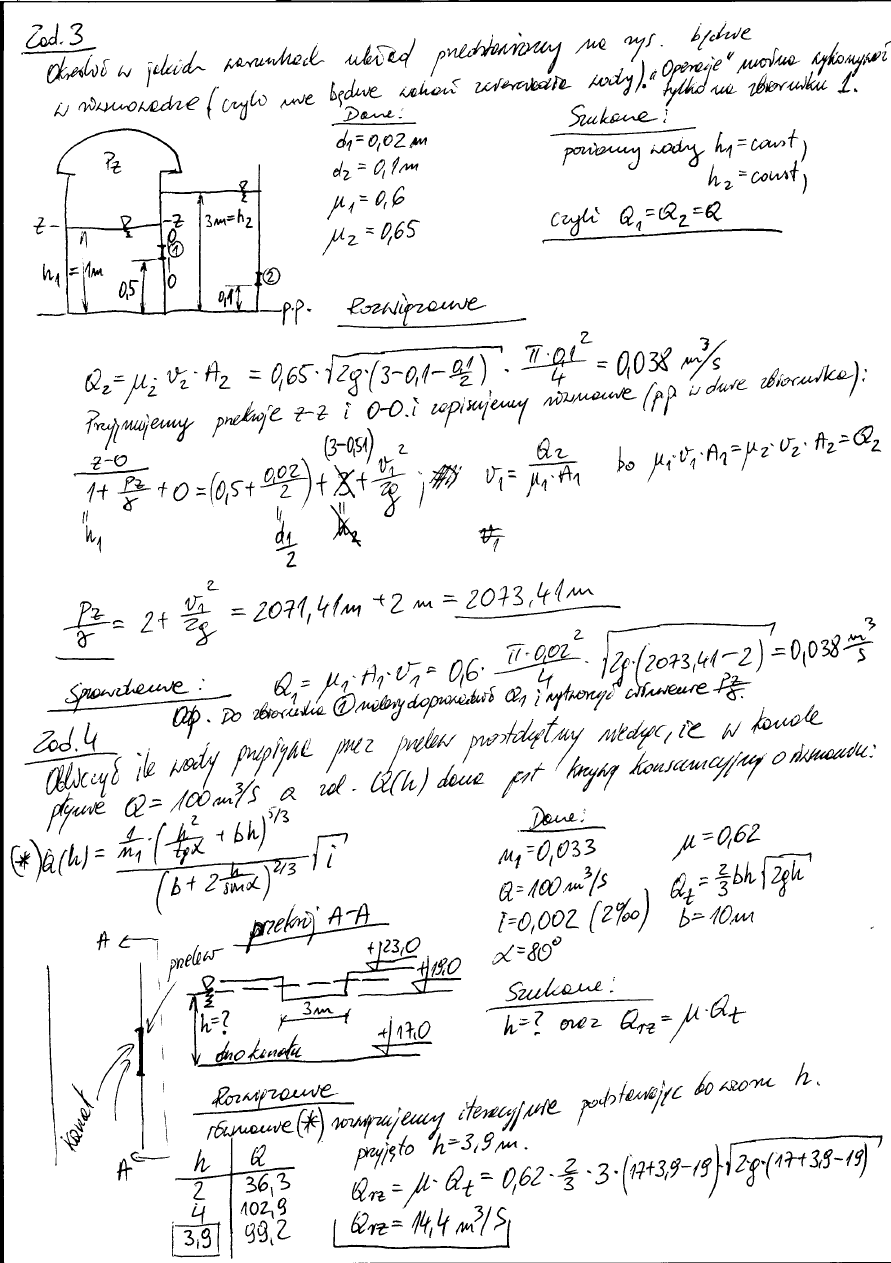 Zad. 3
Określić w jakich warunkach układ przedstawiony na rys. będzie
w równowadze (czyli nie będzie wahań zwierciadła wody). "Operacje" można wykonywać
tylko na zbiorniku 1.
Dane:
d1 = 0,02 m
d2 = 0,1 m
μ1 = 0,6
μ2 = 0,65
Szukane:
poziomy wody h1 = const,
h2 = const,
czyli Q1 = Q2 = Q
Pz
Z
-Z
0
①
0
h1 = 1m
0,5
3m = h2
0,1
②
p.p.
Rozwiązanie
Q2 = μ2·v2·A2 = 0,65·√(2g·(3-0,1-0,1/2))·π·0,1²/4 = 0,038 m³/s
Przyjmujemy przekroje z-z i 0-0 i zapisujemy równanie (p.p. w dnie zbiornika):
z-0
(3-0,51)
1 + Pz/γ + 0 = (0,5 + 0,02/2) + 2 + v1²/2g ; v1 = Q2/(μ1·A1) bo μ1·v1·A1 = μ2·v2·A2 = Q2
h1
d1/2
h2
v1
Pz/γ = 2 + v1²/2g = 2071,41 m + 2 m = 2073,41 m
Sprawdzenie: Q1 = μ1·A1·v1 = 0,6·π·0,02²/4·√(2g·(2073,41-2)) = 0,038 m³/s
Odp. Do zbiornika ① należy doprowadzić Q1 i wytworzyć ciśnienie Pz/γ.
Zad. 4
Obliczyć ile wody przepłynie przez przelew prostokątny wiedząc, że w kanale
płynie Q = 100 m³/s a zal. Q(h) dana jest krzywą konsumcyjną o równaniu:
(*) Q(h) = 1/n1·(h²/tgα + bh)^5/3 / (b + 2 h/sinα)^2/3 √i
Dane:
n1 = 0,033
Q = 100 m³/s
i = 0,002 (2‰)
α = 80°
μ = 0,62
Qt = 2/3 bh√2gh
b = 10 m
Szukane:
h = ? oraz Qrz = μ·Qt
przekrój A-A
A
przelew
kanał
A
+23,0
+19,0
3m
h = ?
+17,0
dno kanału
Rozwiązanie
równanie (*) rozwiązujemy iteracyjnie podstawiając do wzoru h.
przyjęto h = 3,9 m.
h Q
2 36,3
4 102,9
3,9 99,2
Qrz = μ·Qt = 0,62·2/3·3·(17+3,9-19)·√(2·g·(17+3,9-19))
Qrz = 14,4 m³/s